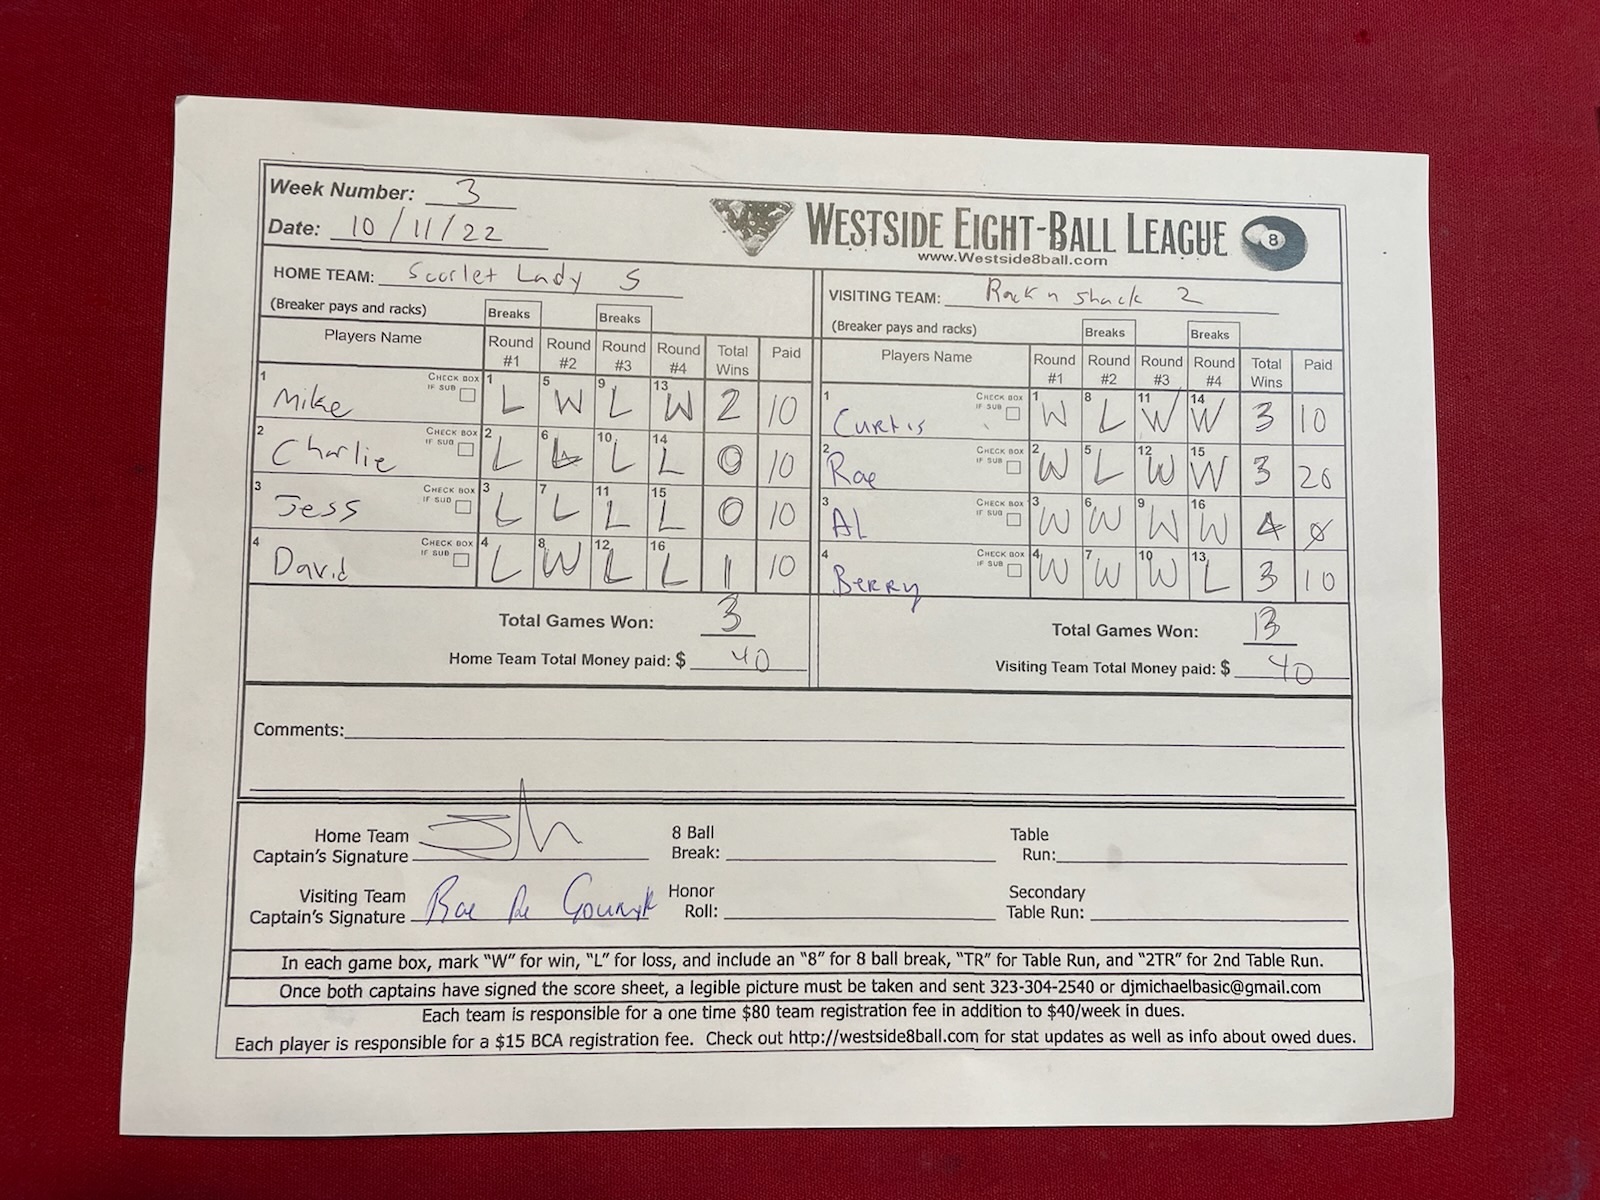 Week Number: 3
Date: 10/11/22
WESTSIDE EIGHT-BALL LEAGUE 8
www.Westside8ball.com
HOME TEAM: Scarlet Lady 5
VISITING TEAM: Rack n shack 2
(Breaker pays and racks) Breaks Breaks
(Breaker pays and racks) Breaks Breaks
Players Name Round #1 Round #2 Round #3 Round #4 Total Wins Paid
Players Name Round #1 Round #2 Round #3 Round #4 Total Wins Paid
1 Mike CHECK BOX IF SUB 1 L 5 W 9 L 13 W 2 10
1 Curtis CHECK BOX IF SUB 1 W 8 L 11 W 14 W 3 10
2 Charlie CHECK BOX IF SUB 2 L 6 L 10 L 14 L 0 10
2 Rae CHECK BOX IF SUB 2 W 5 L 12 W 15 W 3 20
3 Jess CHECK BOX IF SUB 3 L 7 L 11 L 15 L 0 10
3 AL CHECK BOX IF SUB 3 W 6 W 9 W 16 W 4 0
4 David CHECK BOX IF SUB 4 L 8 W 12 L 16 L 1 10
4 Berry CHECK BOX IF SUB 4 W 7 W 10 W 13 L 3 10
Total Games Won: 3
Total Games Won: 13
Home Team Total Money paid: $ 40
Visiting Team Total Money paid: $ 40
Comments:
Home Team Captain's Signature
8 Ball Break:
Table Run:
Visiting Team Captain's Signature Rae
Honor Roll:
Secondary Table Run:
In each game box, mark "W" for win, "L" for loss, and include an "8" for 8 ball break, "TR" for Table Run, and "2TR" for 2nd Table Run.
Once both captains have signed the score sheet, a legible picture must be taken and sent 323-304-2540 or djmichaelbasic@gmail.com
Each team is responsible for a one time $80 team registration fee in addition to $40/week in dues.
Each player is responsible for a $15 BCA registration fee. Check out http://westside8ball.com for stat updates as well as info about owed dues.